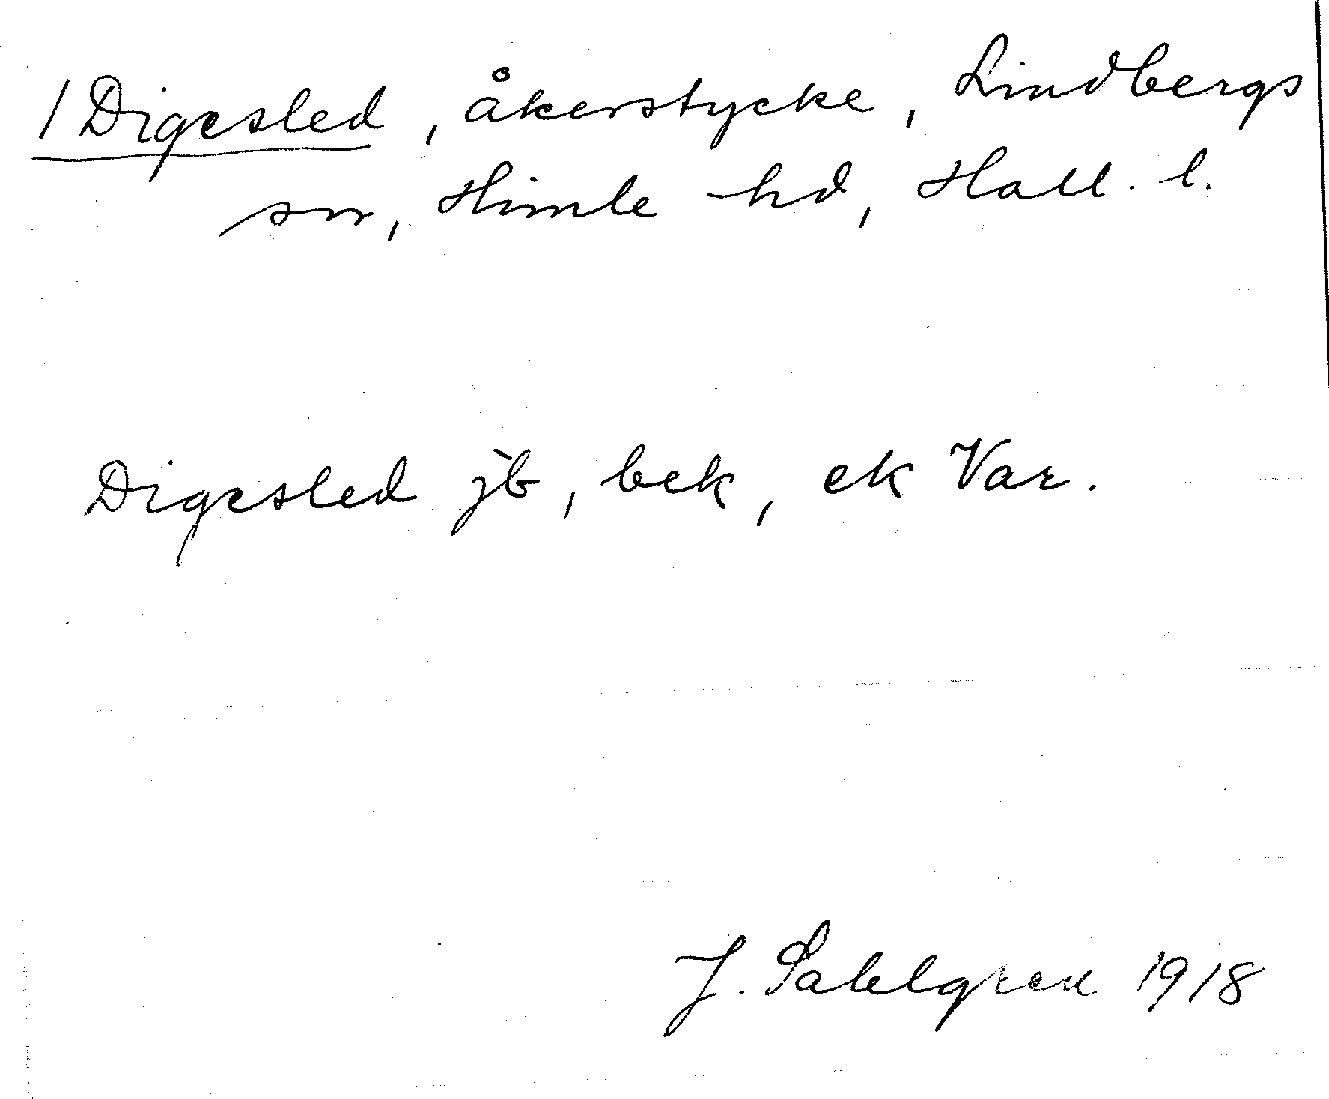 / Digesled, åkerstycke, Lindbergs
sn, Himle hd, Hall. l.
Digesled jb, bek, ek Var.
J. Sahlgren 1918